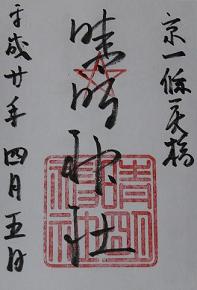 京一條戻橋
晴明神社
平成廿年四月五日
晴明
神社